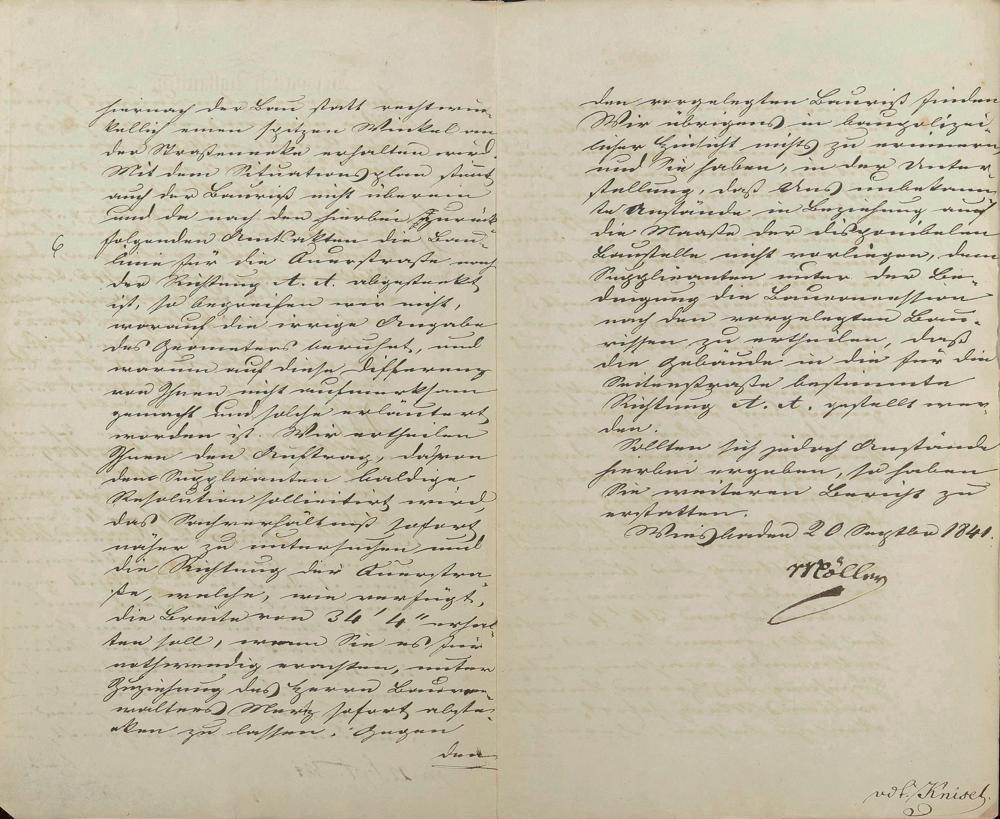 hiernach der Bau statt rechtwin-
kellich einen spitzen Winkel an
der Straßenecke erhalten wird.
Mit dem Situationsplan stimmt
auch der Bauriß nicht überein
und da nach den hierbei zurück
folgenden Amtsakten die Bau-
linie für die Querstraße nach
der Richtung A. A. abgesteckt
ist, so begreifen wir nicht,
worauf die irrige Angabe
des Geometers beruhet, und
warum auf diese Differenz
von Ihnen nicht aufmerksam
gemacht und solche erläutert
worden ist. Wir ertheilen
Ihnen den Auftrag, davon
dem Supplicanten baldige
Resolution sollicitirt wird,
das Sachverhältniß sofort
näher zu untersuchen und
die Richtung der Querstra-
ße, welche, wie verfügt,
die Breite von 34' 4" erhal-
ten soll, wenn Sie es für
nothwendig erachten, unter
Zuziehung des Herrn Bauver-
walters Martz sofort abste-
cken zu lassen. Gegen
den
den vorgelegten Bauriß finden
Wir übrigens in baupolizei-
licher Hinsicht nichts zu erinnern
und Sie haben, in der Unter-
stellung, daß Uns unbekann-
te Anstände in Beziehung auf
die Maaße der disponibelen
Baustelle nicht vorliegen, dem
Supplicanten unter der Be-
dingung die Bauconcession
nach den vorgelegten Bau-
rissen zu ertheilen, daß
die Gebäude in die für die
Seitenstraße bestimmte
Richtung A. A. gestellt wer-
den.
Sollten sich jedoch Anstände
hierbei ergeben, so haben
Sie weiteren Bericht zu
erstatten.
Wiesbaden 20 Septbr 1841.
Möller
vdt. Knisel.